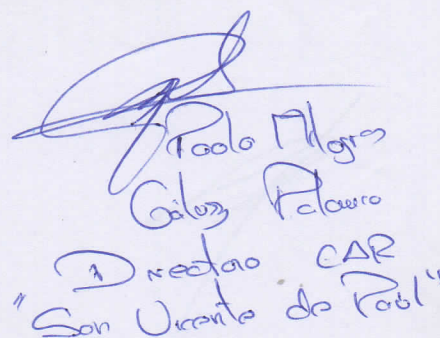 Paola Milagros
Gálvez Palomino
Directora CAR
"San Vicente de Paúl"